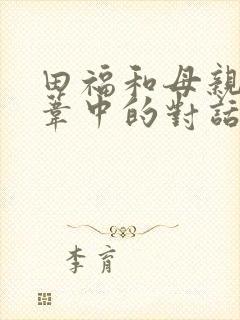 田福和母親
葦中的對話
李育